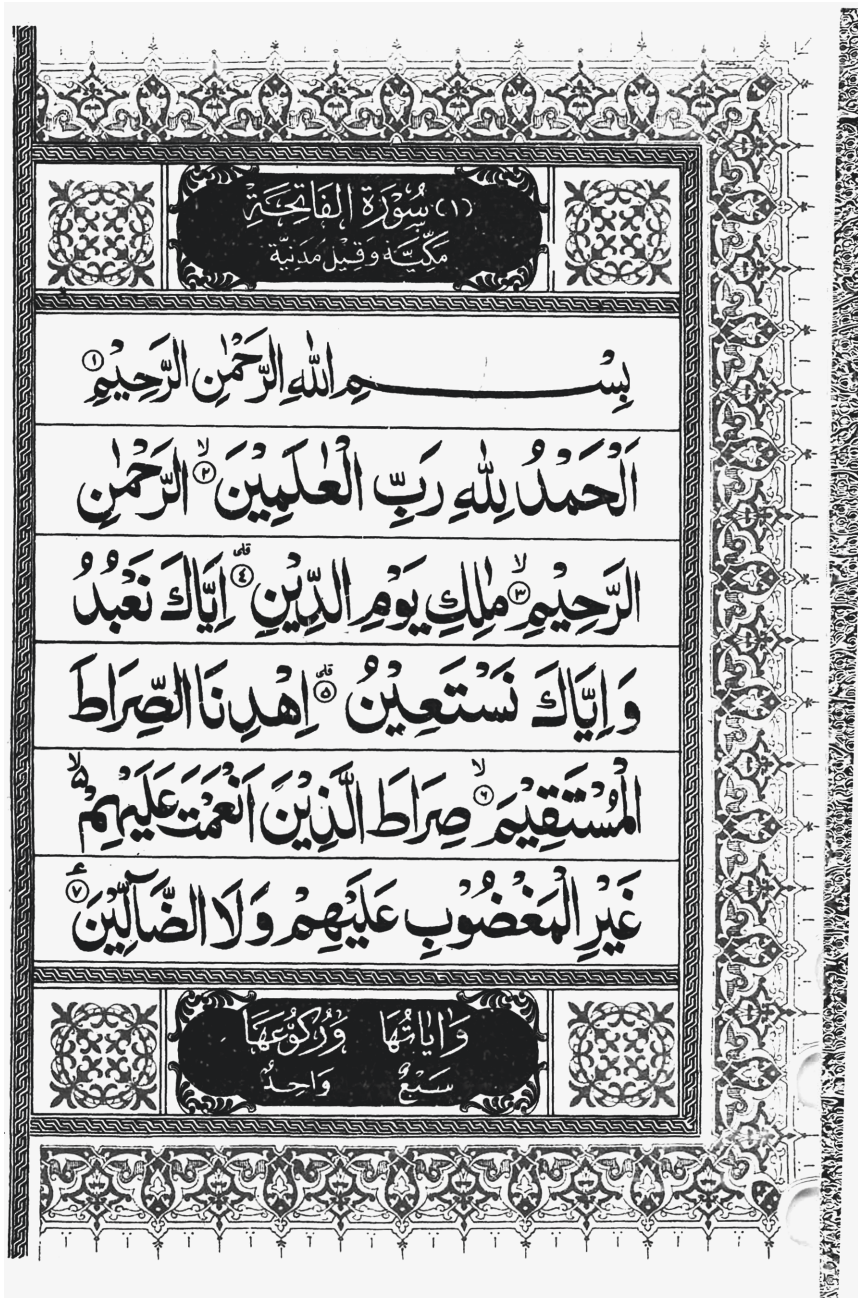 (١) سُوْرَةُ الفَاتِحَةِ
مَكِّيَّة وَقِيْلَ مَدَنِيَّة
بِسْــــــمِ اللّٰهِ الرَّحْمٰنِ الرَّحِيْمِ ①
اَلْحَمْدُ لِلّٰهِ رَبِّ الْعٰلَمِيْنَ ۙ ② الرَّحْمٰنِ
الرَّحِيْمِ ۙ ③ مٰلِكِ يَوْمِ الدِّيْنِ ۗ ④ اِيَّاكَ نَعْبُدُ
وَاِيَّاكَ نَسْتَعِيْنُ ۗ ⑤ اِهْدِنَا الصِّرَاطَ
الْمُسْتَقِيْمَ ۙ ⑥ صِرَاطَ الَّذِيْنَ اَنْعَمْتَ عَلَيْهِمْ ۙ۵
غَيْرِ الْمَغْضُوْبِ عَلَيْهِمْ وَلَا الضَّآلِّيْنَ ⑦
وَاٰيَاتُهَا وَرُكُوْعُهَا
سَبْعٌ وَاحِدٌ